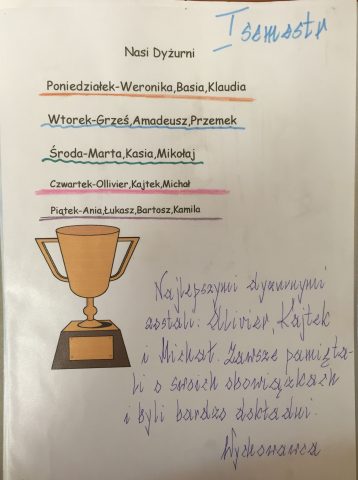 I semestr
Nasi Dyżurni
Poniedziałek-Weronika,Basia,Klaudia
Wtorek-Grześ,Amadeusz,Przemek
Środa-Marta,Kasia,Mikołaj
Czwartek-Ollivier,Kajtek,Michał
Piątek-Ania,Łukasz,Bartosz,Kamila
Najlepszymi dyżurnymi
zostali: Ollivier, Kajtek
i Michał. Zawsze pamięta-
li o swoich obowiązkach
i byli bardzo dokładni.
Wychowawca